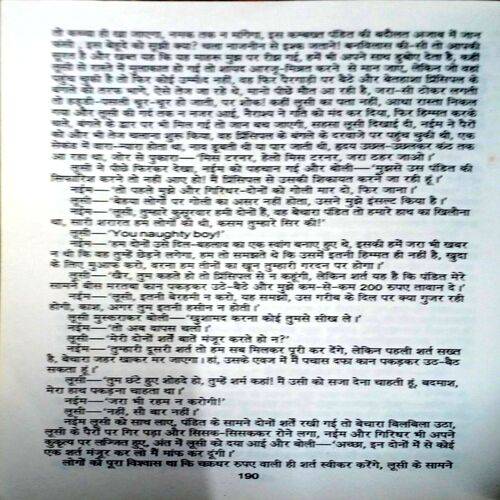 तो कच्चा ही खा जाएगा, नमक तक न मांगेगा, इस कमबख्त पंडित की बदौलत अजाब में जान
फंसी। इस बेहूदे को सूझी क्या? चला नाजनीन से इश्क जताने! बनविलास की-सी तो आपकी
सूरत है और खब्त यह कि यह माहरू मुझ पर रीझ गई, हमें भी अपने साथ डुबोए देता है, कहीं
लूसी से रास्ते में मुलाकात हो गई तो शायद आरजू-मिन्नत करने से मान जाए, लेकिन जो वहां
पहुंच चुकी है तो फिर कोई उम्मीद नहीं, वह फिर पैरगाड़ी पर बैठे और बेतहाशा प्रिंसिपल के
बंगले की तरफ भागे, ऐसे तेज जा रहे थे, मानो पीछे मौत आ रही है, जरा-सी ठोकर लगती
तो हड्डी-पसली चूर-चूर हो जाती, पर शोक! कहीं लूसी का पता नहीं, आधा रास्ता निकल
गया और लूसी की गर्द तक न नजर आई, नैराश्य ने गति को मंद कर दिया, फिर हिम्मत करके
चले, बंगले के द्वार पर भी मिल गई तो जान बच जाएगी, सहसा लूसी दिखाई दी, नईम ने पैरों
को और भी तेज चलाना शुरू किया, वह प्रिंसिपल के बंगले के दरवाजे पर पहुंच चुकी थी, एक
सेकंड में वारा-न्यारा होता था, नाव डूबती थी या पार जाती थी, हृदय उछल-उछलकर कंठ तक
आ रहा था, जोर से पुकारा—'मिस टरनर, हेलो मिस टरनर, जरा ठहर जाओ।'
लूसी ने पीछे फिरकर देखा, नईम को पहचान गई और बोली—'मुझसे उस पंडित की
सिफारिश करने तो नहीं आए हो! मैं प्रिंसिपल से उसकी शिकायत करने जा रही हूं।'
नईम—'तो पहले मुझे और गिरिधर-दोनों को गोली मार दो, फिर जाना।'
लूसी—'बेहया लोगों पर गोली का असर नहीं होता, उसने मुझे इंसल्ट किया है।'
नईम—'लूसी, तुम्हारे कुसूरवार हमीं दोनों हैं, वह बेचारा पंडित तो हमारे हाथ का खिलौना
था, मारी शरारत हम लोगों की थी, कसम तुम्हारे सिर की!'
लूसी—'You naughty boy!'
नईम—'हम दोनों उसे दिल-बहलाव का एक स्वांग बनाए हुए थे, इसकी हमें जरा भी खबर
न थी कि वह तुम्हें छेड़ने लगेगा, हम तो समझते थे कि उसमें इतनी हिम्मत ही नहीं है, खुदा
के लिए मुआफ करो, वरना हम तीनों का खून तुम्हारी गरदन पर होगा।'
लूसी—'खैर, तुम कहते हो तो प्रिंसिपल से न कहूंगी, लेकिन शर्त यह है कि पंडित मेरे
सामने बीस मरतबा कान पकड़कर उठे-बैठे और मुझे कम-से-कम 200 रुपए तावान दे।'
नईम—'लूसी, इतनी बेरहमी न करो, यह समझो, उस गरीब के दिल पर क्या गुजर रही
होगी, काश, अगर तुम इतनी हसीन न होतीं।'
लूसी मुस्कराकर बोली—'खुशामद करना कोई तुमसे सीख ले।'
नईम—'तो अब वापस चलो।'
लूसी—'मेरी दोनों शर्तें मंजूर करते हो न?'
नईम—'तुम्हारी दूसरी शर्त तो हम सब मिलकर पूरी कर देंगे, लेकिन पहली शर्त सख्त
है, बेचारा जहर खाकर मर जाएगा। हां, उसके एवज में मैं पचास दफा कान पकड़कर उठ-बैठ
सकता हूं।'
लूसी—'तुम छटे हुए शोहदे हो, तुम्हें शर्म कहां! मैं उसी को सजा देना चाहती हूं, बदमाश,
मेरा हाथ पकड़ना चाहता था।'
नईम—'जरा भी रहम न करोगी!'
लूसी—'नहीं, सौ बार नहीं।'
नईम लूसी को साथ लाए, पंडित के सामने दोनों शर्तें रखी गई तो बेचारा बिलबिला उठा,
लूसी के पैरों पर गिर पड़ा और सिसक-सिसककर रोने लगा, नईम और गिरिधर भी अपने
कुकृत्य पर लज्जित हुए, अंत में लूसी को दया आई और बोली—'अच्छा, इन दोनों में से कोई
एक शर्त मंजूर कर लो मैं माफ कर दूंगी।'
लोगों को पूरा विश्वास था कि चक्रधर रुपए वाली ही शर्त स्वीकार करेंगे, लूसी के सामने
190